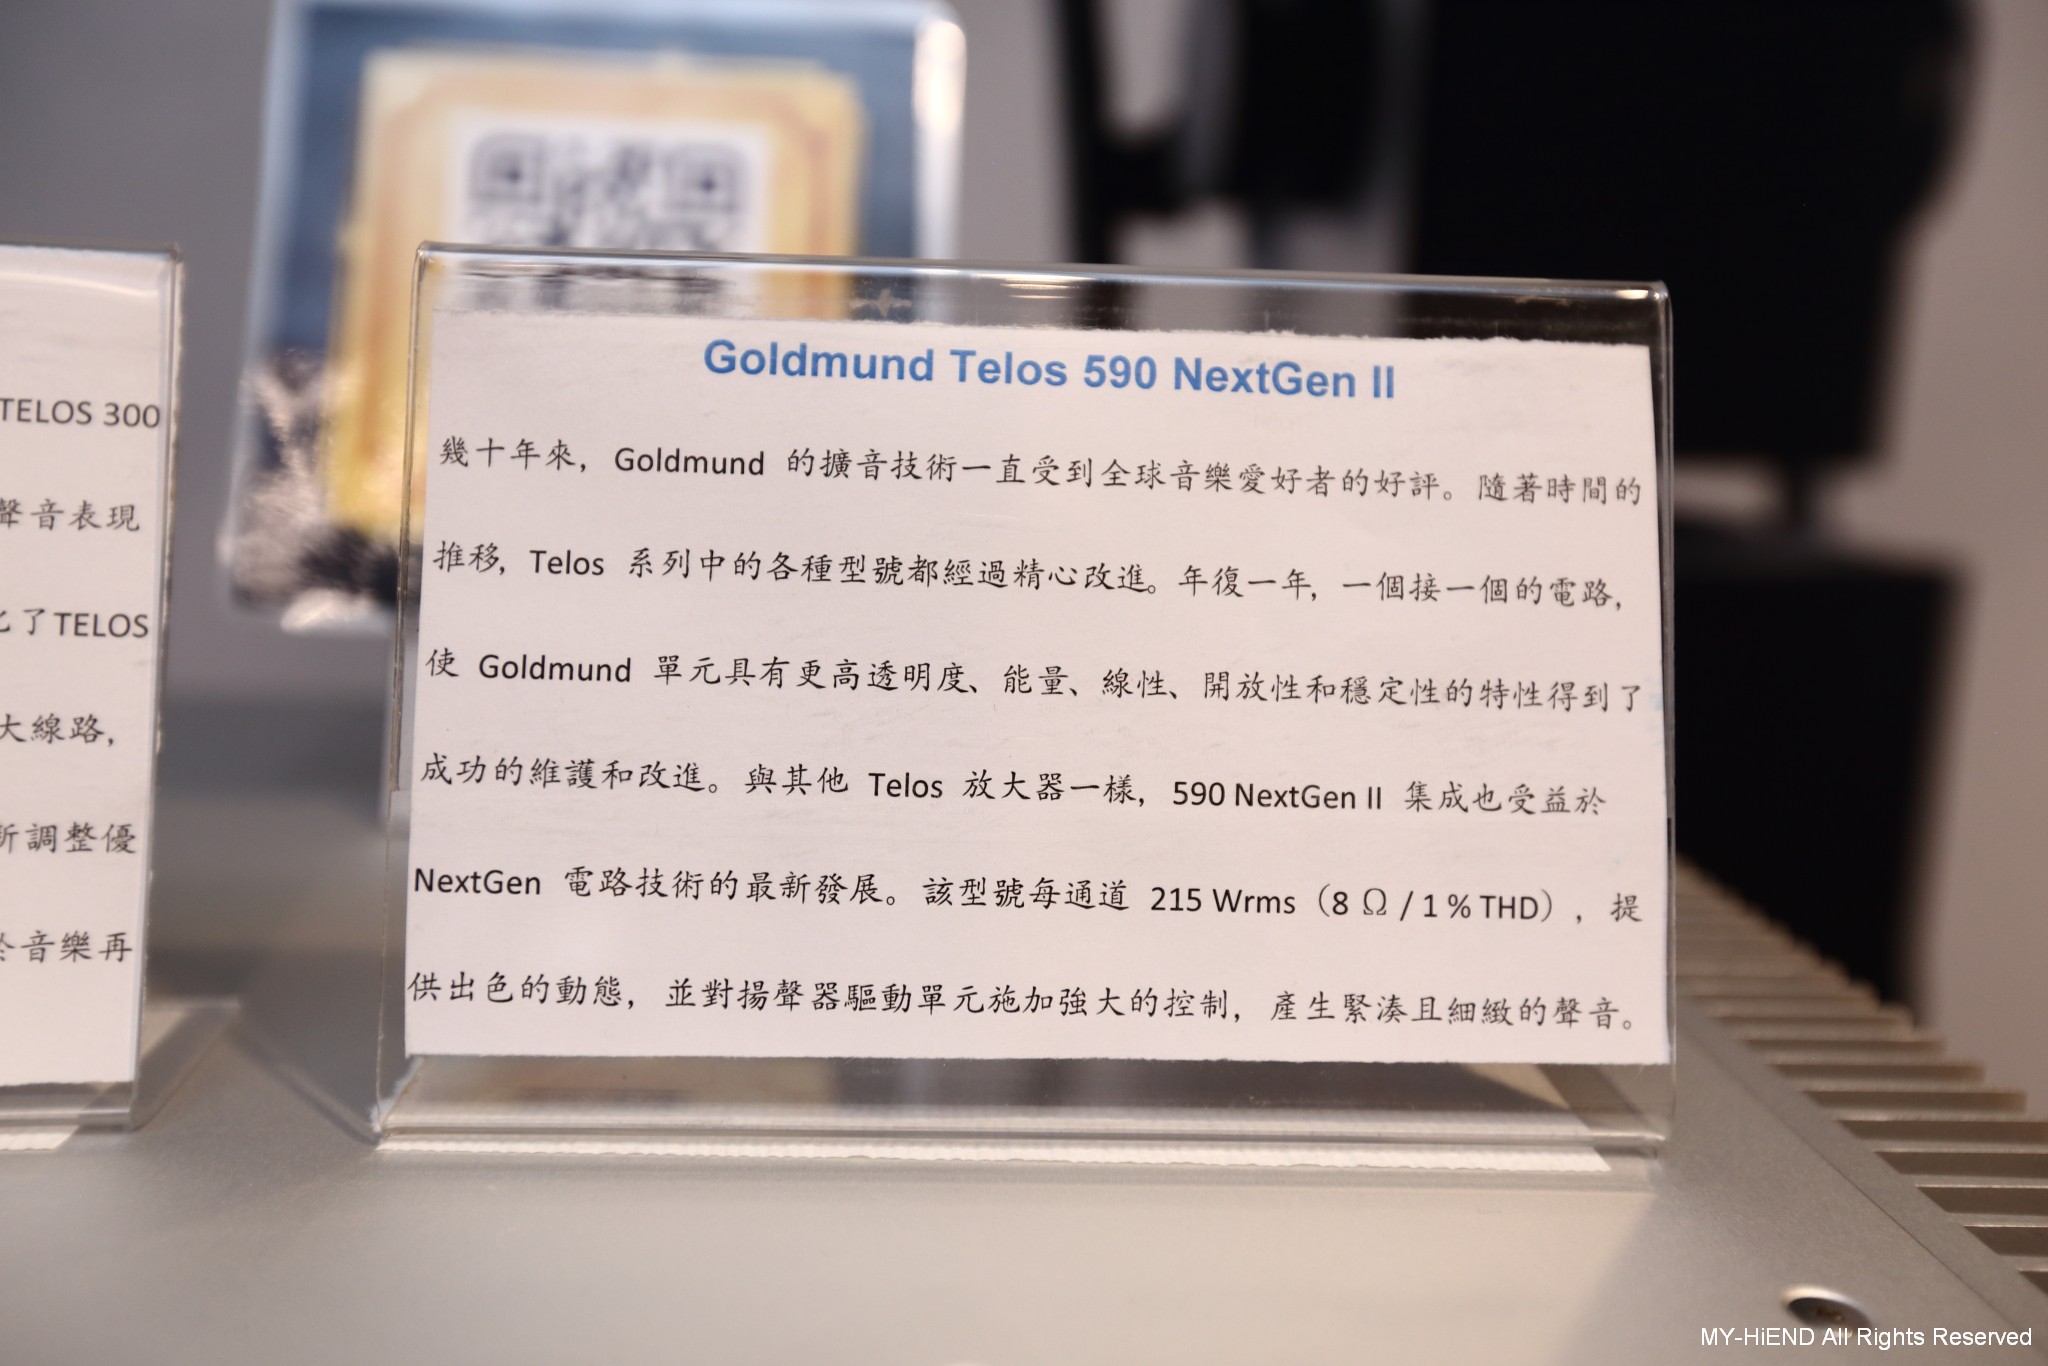 Goldmund Telos 590 NextGen II
幾十年來, Goldmund 的擴音技術一直受到全球音樂愛好者的好評。隨著時間的
推移, Telos 系列中的各種型號都經過精心改進。年復一年, 一個接一個的電路,
使 Goldmund 單元具有更高透明度、能量、線性、開放性和穩定性的特性得到了
成功的維護和改進。與其他 Telos 放大器一樣, 590 NextGen II 集成也受益於
NextGen 電路技術的最新發展。該型號每通道 215 Wrms（8 Ω / 1 % THD）, 提
供出色的動態, 並對揚聲器驅動單元施加強大的控制, 產生緊湊且細緻的聲音。
TELOS 300
聲音表現
了TELOS
大線路,
調整優
音樂再
MY-HiEND All Rights Reserved